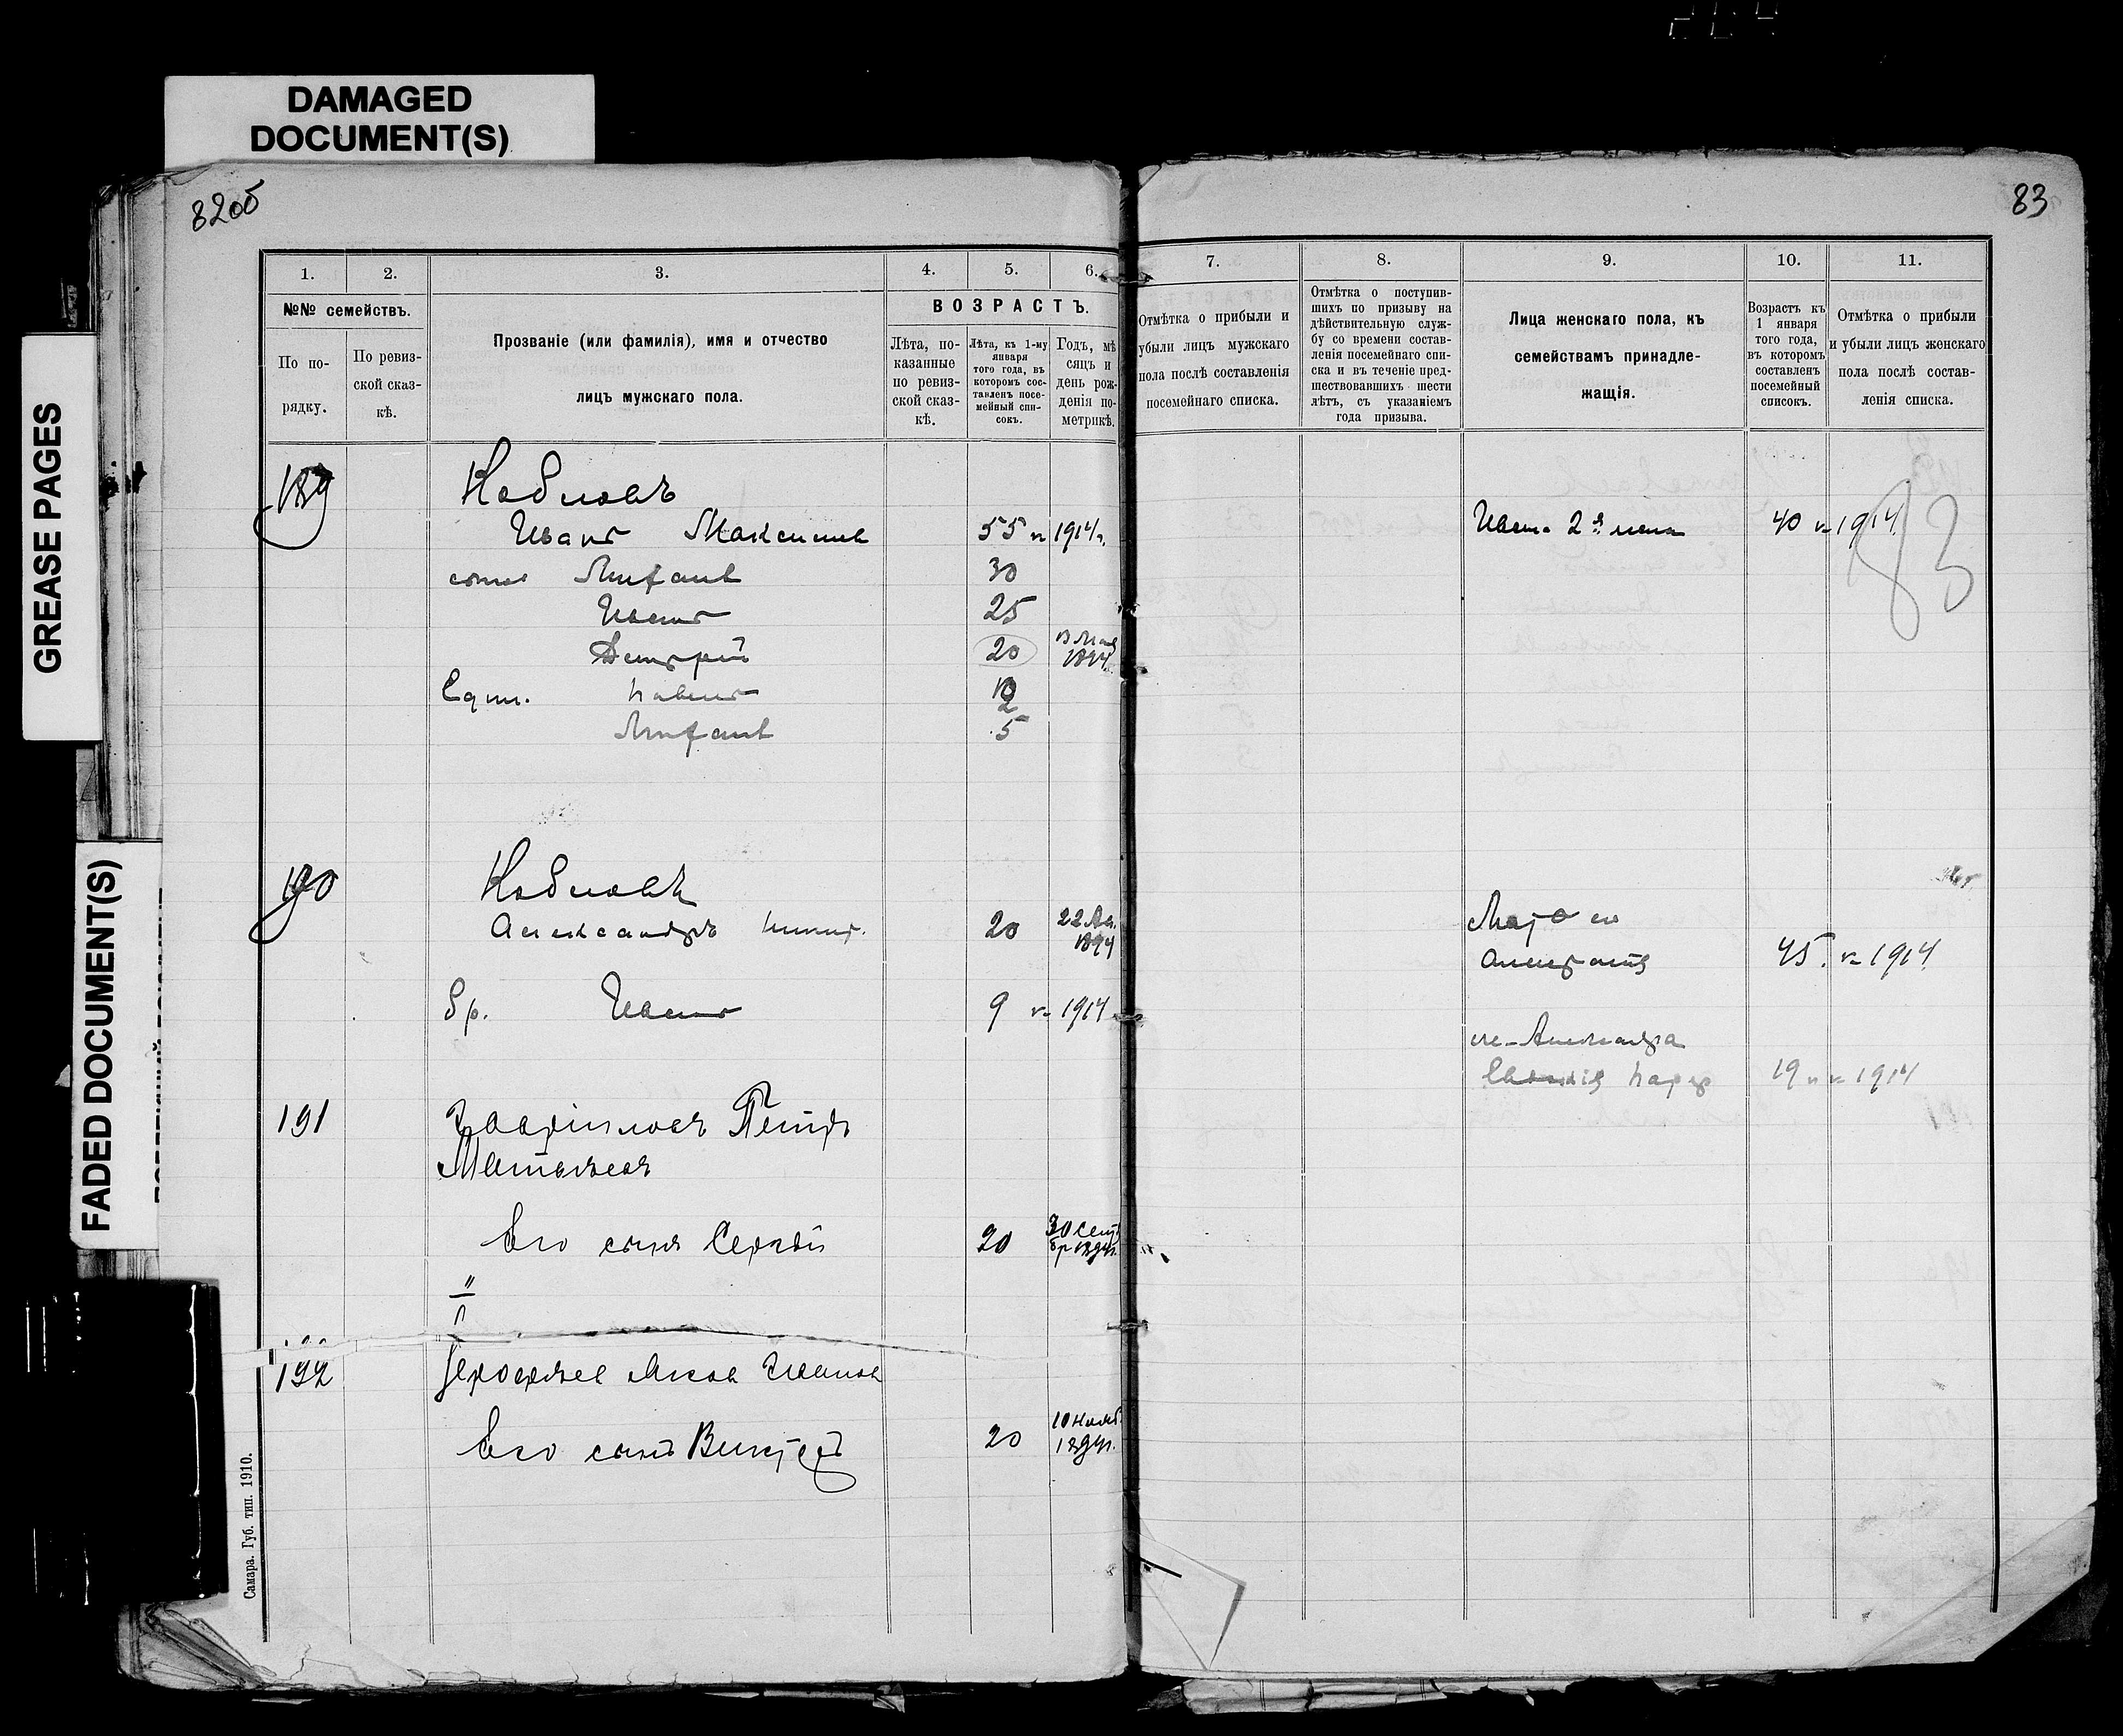 DAMAGED
DOCUMENT(S)
GREASE PAGES
FADED DOCUMENT(S)
82об
83
1.
2.
3.
4.
5.
6.
7.
8.
9.
10.
11.
№№ семействъ.
По по-
рядку.
По ревиз-
ской сказ-
кѣ.
Прозваніе (или фамилія), имя и отчество
лицъ мужскаго пола.
ВОЗРАСТЪ.
Лѣта, по-
казанные
по ревиз-
ской сказ-
кѣ.
Лѣта, къ 1-му
января
того года, въ
которомъ сос-
тавленъ посе-
мейный спи-
сокъ.
Годъ, мѣ
сяцъ и
день рож-
денія по-
метрикѣ.
Отмѣтка о прибыли и
убыли лицъ мужскаго
пола послѣ составленія
посемейнаго списка.
Отмѣтка о поступив-
шихъ по призыву на
дѣйствительную служ-
бу со времени состав-
ленія посемейнаго спи-
ска и въ теченіе пред-
шествовавшихъ шести
лѣтъ, съ указаніемъ
года призыва.
Лица женскаго пола, къ
семействамъ принадле-
жащія.
Возрастъ къ
1 января
того года,
въ которомъ
составленъ
посемейный
списокъ.
Отмѣтка о прибыли
и убыли лицъ женскаго
пола послѣ состав-
ленія списка.
189
Кобловъ
Иванъ Максимов
55 1914 г.
Ивана 2я жена
40 1914
83
30
Иванъ
25
Дмитрій
20
1894
Павелъ
5
190
Кобловъ
Александръ
20
22
1894
Мать его
45. 1914
бр. Иванъ
9 1914
же-Александра
19 1914
191
Гавриловъ Петръ
Матвѣевъ
Его сынъ Сергѣй
20
30 Сент
бр 1894г.
192
Ерофѣев Яков Иванов
Его сынъ Викторъ
20
10 Нояб.
1894г.
Самара. Губ. тип. 1910.